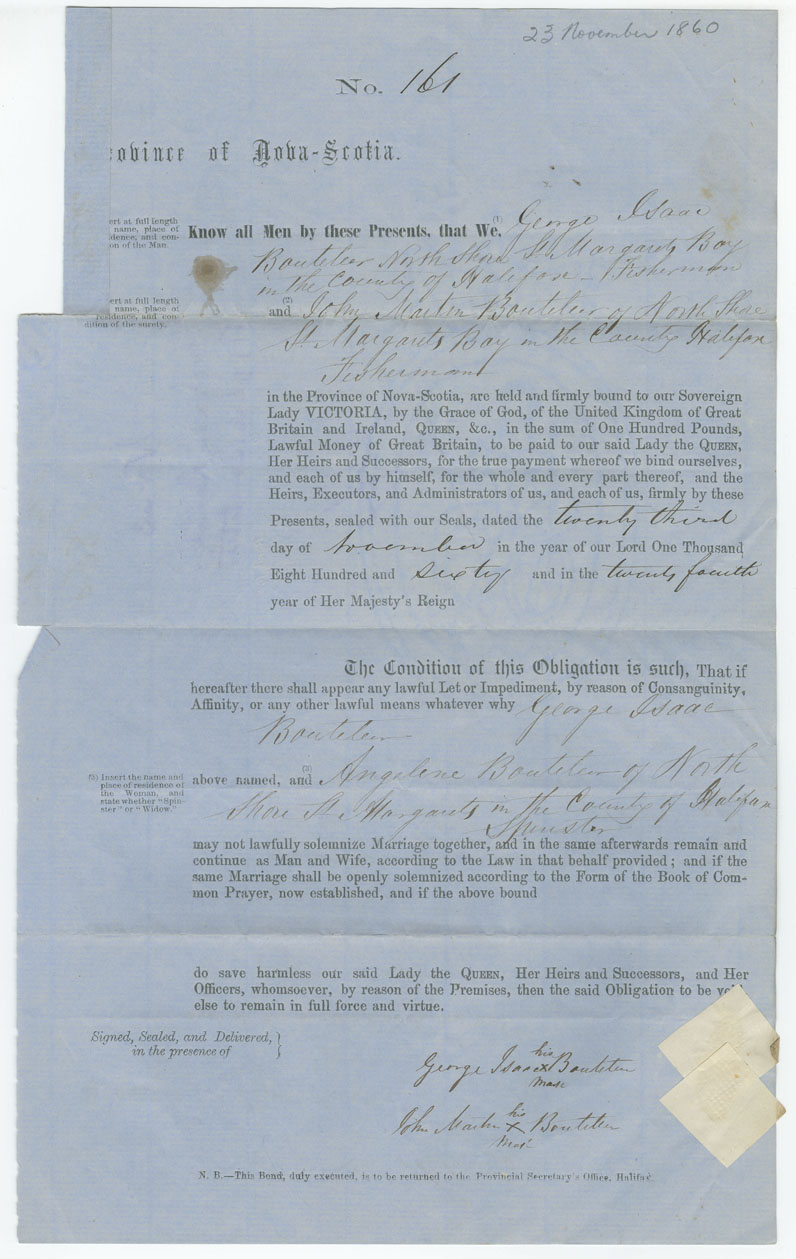 23 November 1860
No. 161
ovince of Nova-Scotia.
ert at full length
name, place of
idence, and con-
on of the Man.
Know all Men by these Presents, that We, (1) George Isaac
Bouteleir North Shore St. Margarets Bay
in the County of Halifax - Fisherman
ert at full length
name, place of
residence, and con-
dition of the surety.
(2)
and John Martin Bouteleir of North Shore
St. Margarets Bay in the County Halifax
Fisherman
in the Province of Nova-Scotia, are held and firmly bound to our Sovereign
Lady VICTORIA, by the Grace of God, of the United Kingdom of Great
Britain and Ireland, QUEEN, &c., in the sum of One Hundred Pounds,
Lawful Money of Great Britain, to be paid to our said Lady the QUEEN,
Her Heirs and Successors, for the true payment whereof we bind ourselves,
and each of us by himself, for the whole and every part thereof, and the
Heirs, Executors, and Administrators of us, and each of us, firmly by these
Presents, sealed with our Seals, dated the twenty third
day of November in the year of our Lord One Thousand
Eight Hundred and sixty and in the twenty fourth
year of Her Majesty's Reign
The Condition of this Obligation is such, That if
hereafter there shall appear any lawful Let or Impediment, by reason of Consanguinity,
Affinity, or any other lawful means whatever why George Isaac
Bouteleir
(3) Insert the name and
place of residence of
the Woman, and
state whether "Spin-
ster" or "Widow."
above named, and (3) Angelene Bouteleir of North
Shore St. Margarets in the County of Halifax
Spinster
may not lawfully solemnize Marriage together, and in the same afterwards remain and
continue as Man and Wife, according to the Law in that behalf provided; and if the
same Marriage shall be openly solemnized according to the Form of the Book of Com-
mon Prayer, now established, and if the above bound
do save harmless our said Lady the QUEEN, Her Heirs and Successors, and Her
Officers, whomsoever, by reason of the Premises, then the said Obligation to be void
else to remain in full force and virtue.
Signed, Sealed, and Delivered, }
in the presence of
his
George Isaac x Bouteleir
mark
his
John Martin x Bouteleir
mark
N. B.—This Bond, duly executed, is to be returned to the Provincial Secretary's Office, Halifax.